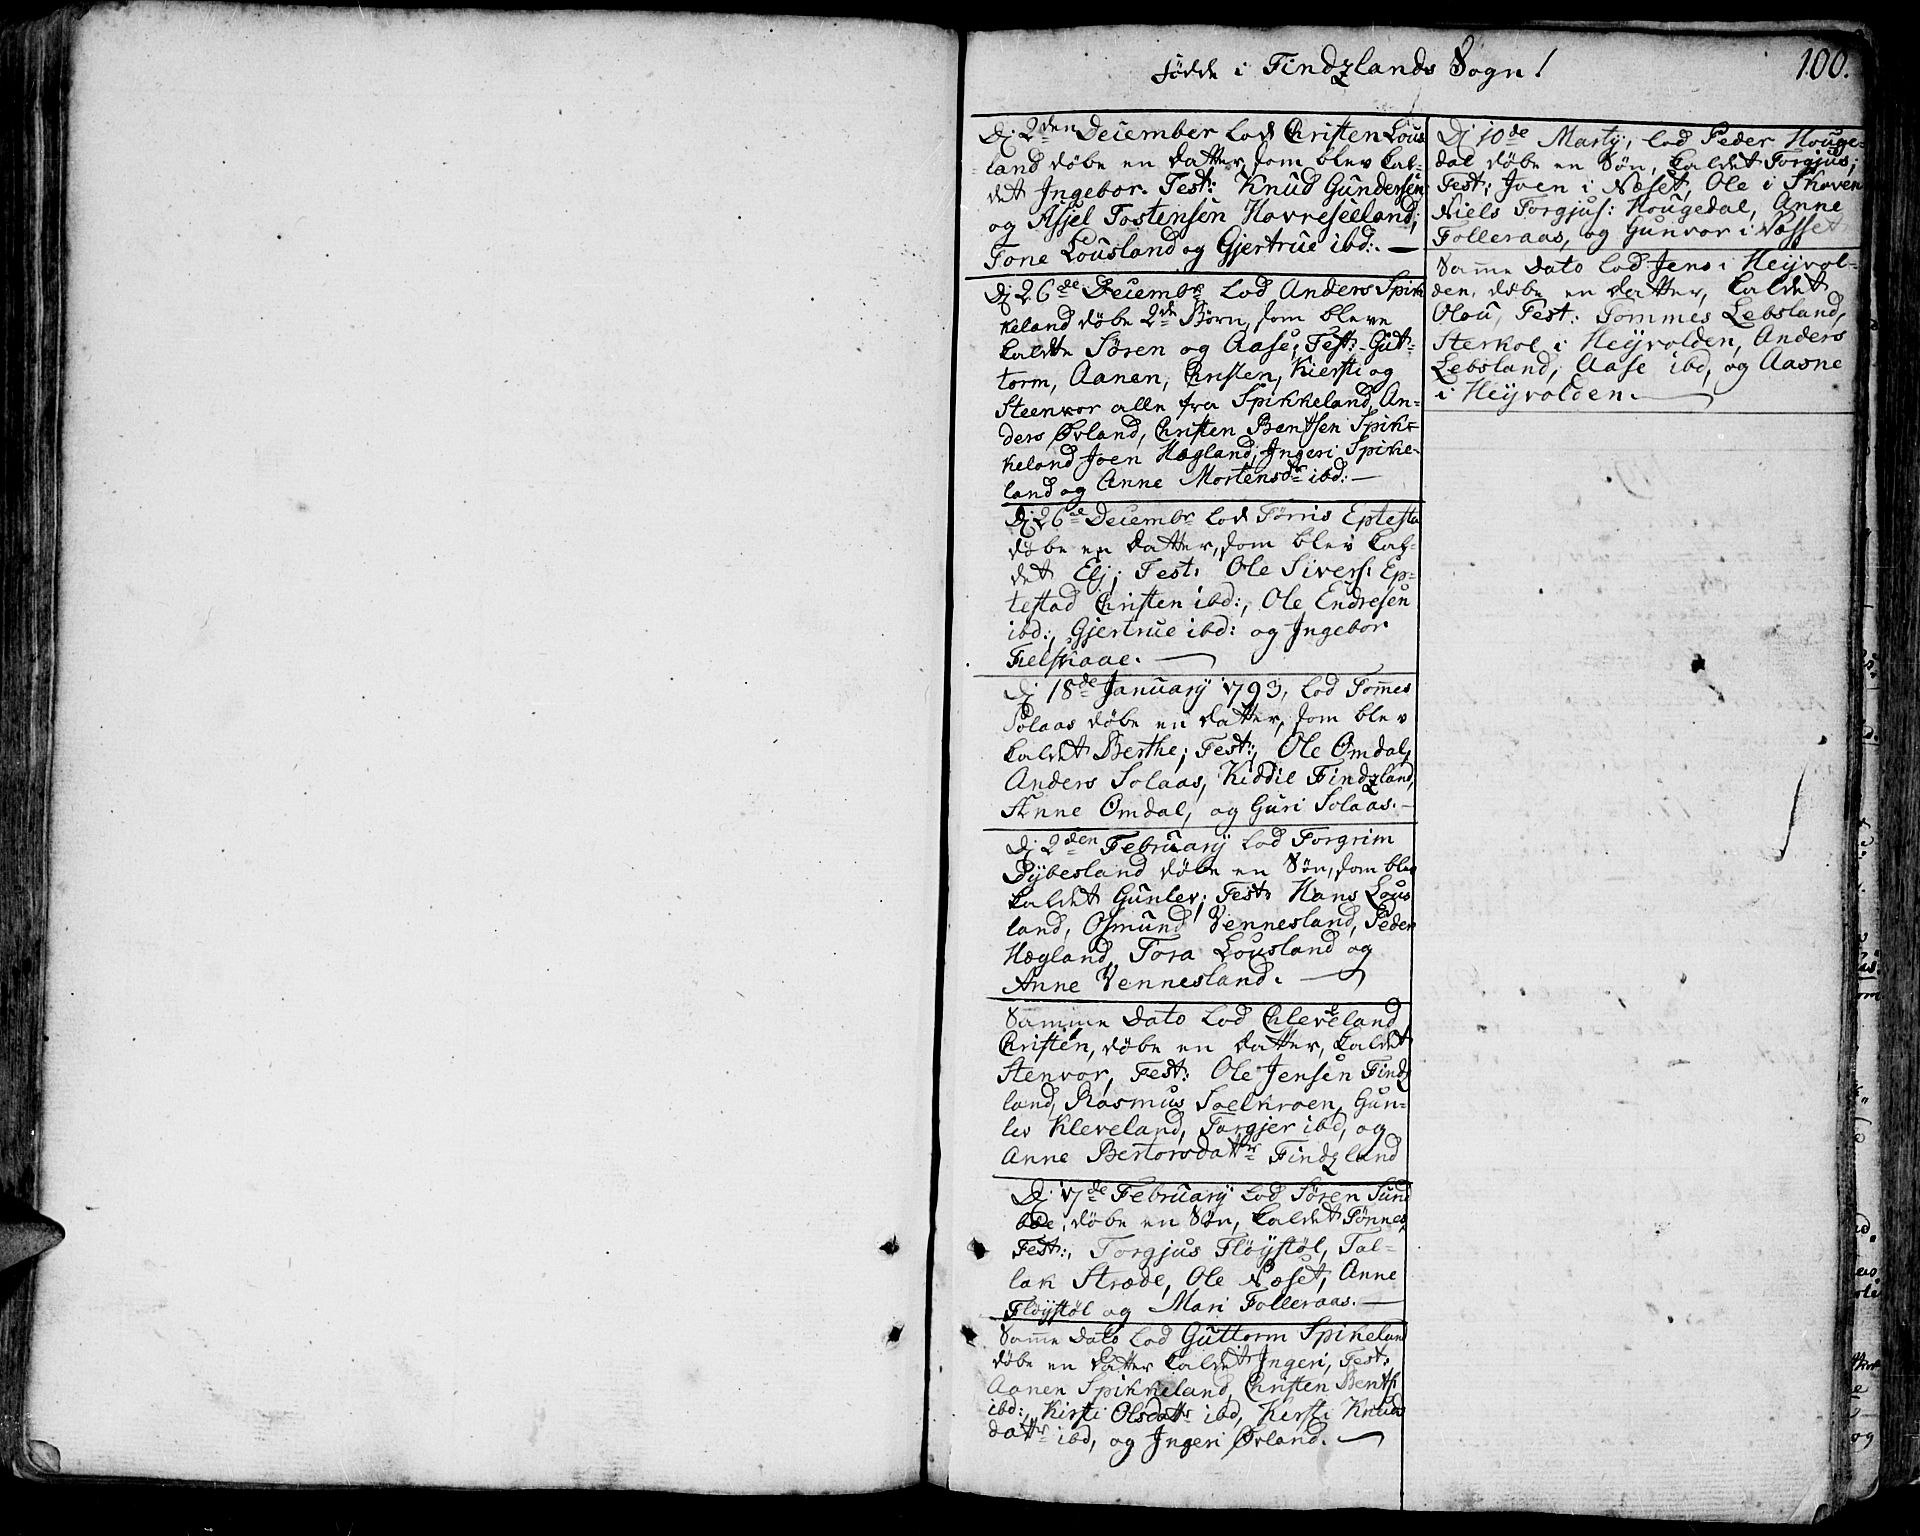 Födde i Findzlands Sogn!
100.
Dj 2den December lod Christen Lous
land döbe en datter, som blev kal-
det Ingebor. Test: Knud Gundersen
og Assjel Tostensen Hovreseeland;
Tone Lousland og Gjertrue ibd:. —
Dj 26de Decembr lod Anders Spik
keland döbe 2de Börn, som bleve
kaldte Sören og Aase; Test: Gut-
torm, Aanen, Christen, Kiersti og
Steenvor alle fra Spikkeland, An-
ders Øvland, Christen Bentsen Spik-
keland Joen Hægland; Ingeri Spike-
land og Anne Mortensdr ibd: —
Dj 26de Decembr lod Törris Eptesta
döbe en datter, som blev kal-
det Elj; Test: Ole Sivers: Ep-
testad Christen ibd:, Ole Endresen
ibd:, Gjertrue ibd: og Ingebor
Fielskaae. —
Dj 18de January 1793, lod Tomes
Solaas döbe en datter, som blev
kaldet Berthe; Test:, Ole Omdal,
Anders Solaas, Kiddil Findzland,
Anne Omdal, og Guri Solaas. —
Dj 2den February lod Torgrim
Dybesland döbe en Sön, som blev
kaldet Gunlev; Test: Hans Lous
land, Osmund Vennesland, Peder
Hægland, Tora Lousland og
Anne Vennesland. —
Samme Dato lod Chleveland
Christen, döbe en datter, kaldet
Stenvor, Test: Ole Jensen Findz
land, Rasmus Soelkroen, Gun-
lev Kleveland, Torgjer ibd, og
Anne Bertorsdattr Findzland
Dj 17de February lod Sören Sund
böe, döbe en Sön, kaldet Tönnes,
Test:, Torgjus Flöystöl, Tal-
lak Stræde, Ole Næset, Anne
Flöystöl og Mari Folleraas. —
Samme Dato lod Guttorm Spikeland
döbe en datter kaldet Ingeri, Test:,
Aanen Spikkeland, Christen Bents:
ibd:, Kirsti Olsdattr ibd, Kersti Knuds
dattr ibd, og Ingeri Øvland. —
Dj 10de Martij, lod Peder Houge-
dal döbe en Sön, kaldet Torgjus;
Test; Joen i Næset, Ole i Skoven
Niels Torgjus: Hougedal, Anne
Folleraas, og Gunvor i Næsset
Samme Dato lod Jens i Heyvol-
den, döbe en datter, kaldet
Olou, Test: Tommes Lebsland,
Sterkol i Heyvolden, Anders
Lebsland, Aase ibd, og Aasne
i Heyvolden. —